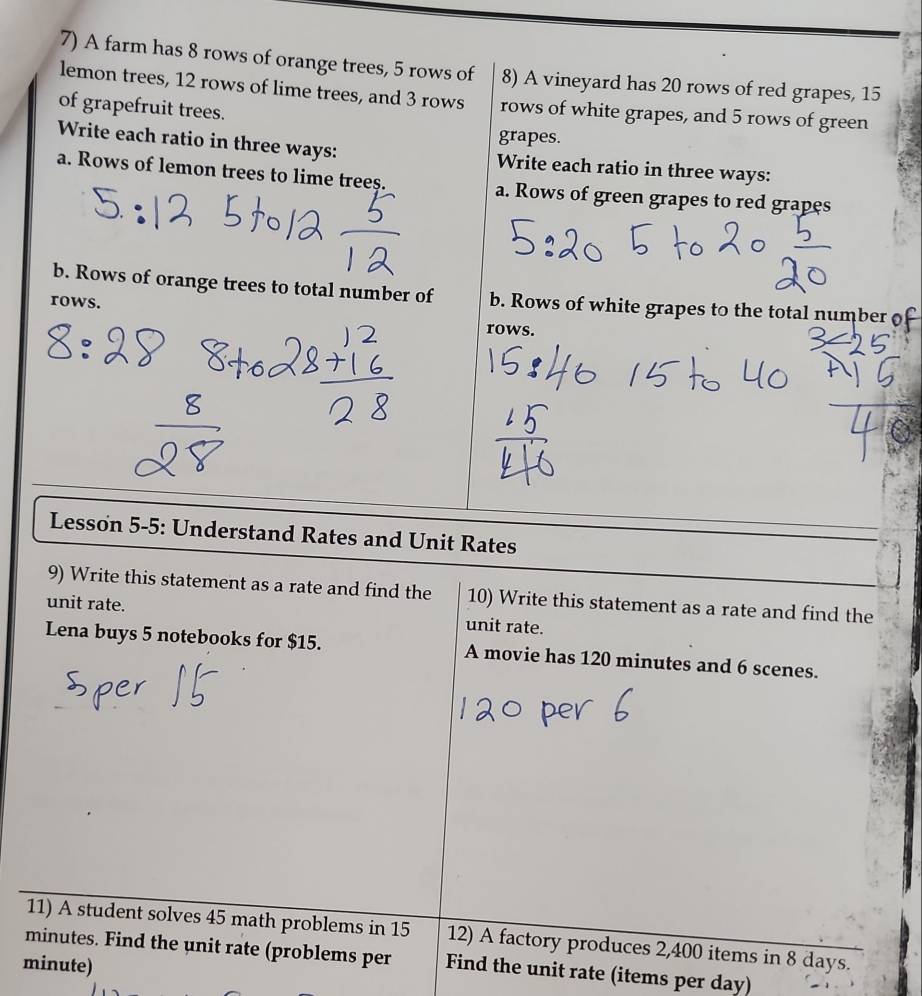 7) A farm has 8 rows of orange trees, 5 rows of
lemon trees, 12 rows of lime trees, and 3 rows
of grapefruit trees.
Write each ratio in three ways:
a. Rows of lemon trees to lime trees.
5:12 5 to 12 5/12
b. Rows of orange trees to total number of
rows.
8:28 8 to 28
12
+16
28
8/28
8) A vineyard has 20 rows of red grapes, 15
rows of white grapes, and 5 rows of green
grapes.
Write each ratio in three ways:
a. Rows of green grapes to red grapes
5:20 5 to 20 5/20
b. Rows of white grapes to the total number of
rows.
15:40 15 to 40
25
15
40
15/40
Lesson 5-5: Understand Rates and Unit Rates
9) Write this statement as a rate and find the
unit rate.
Lena buys 5 notebooks for $15.
5 per 15
10) Write this statement as a rate and find the
unit rate.
A movie has 120 minutes and 6 scenes.
120 per 6
11) A student solves 45 math problems in 15
minutes. Find the unit rate (problems per
minute)
12) A factory produces 2,400 items in 8 days.
Find the unit rate (items per day)